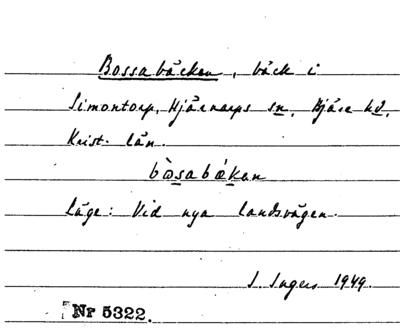 Bossabäcken, bäck i
Simontorp, Hjärnarps sn, Bjäre hd,
Krist. län.
bòsabǽkan
Läge: Vid nya landsvägen.
I. Ingers 1949.
Nr 5322.